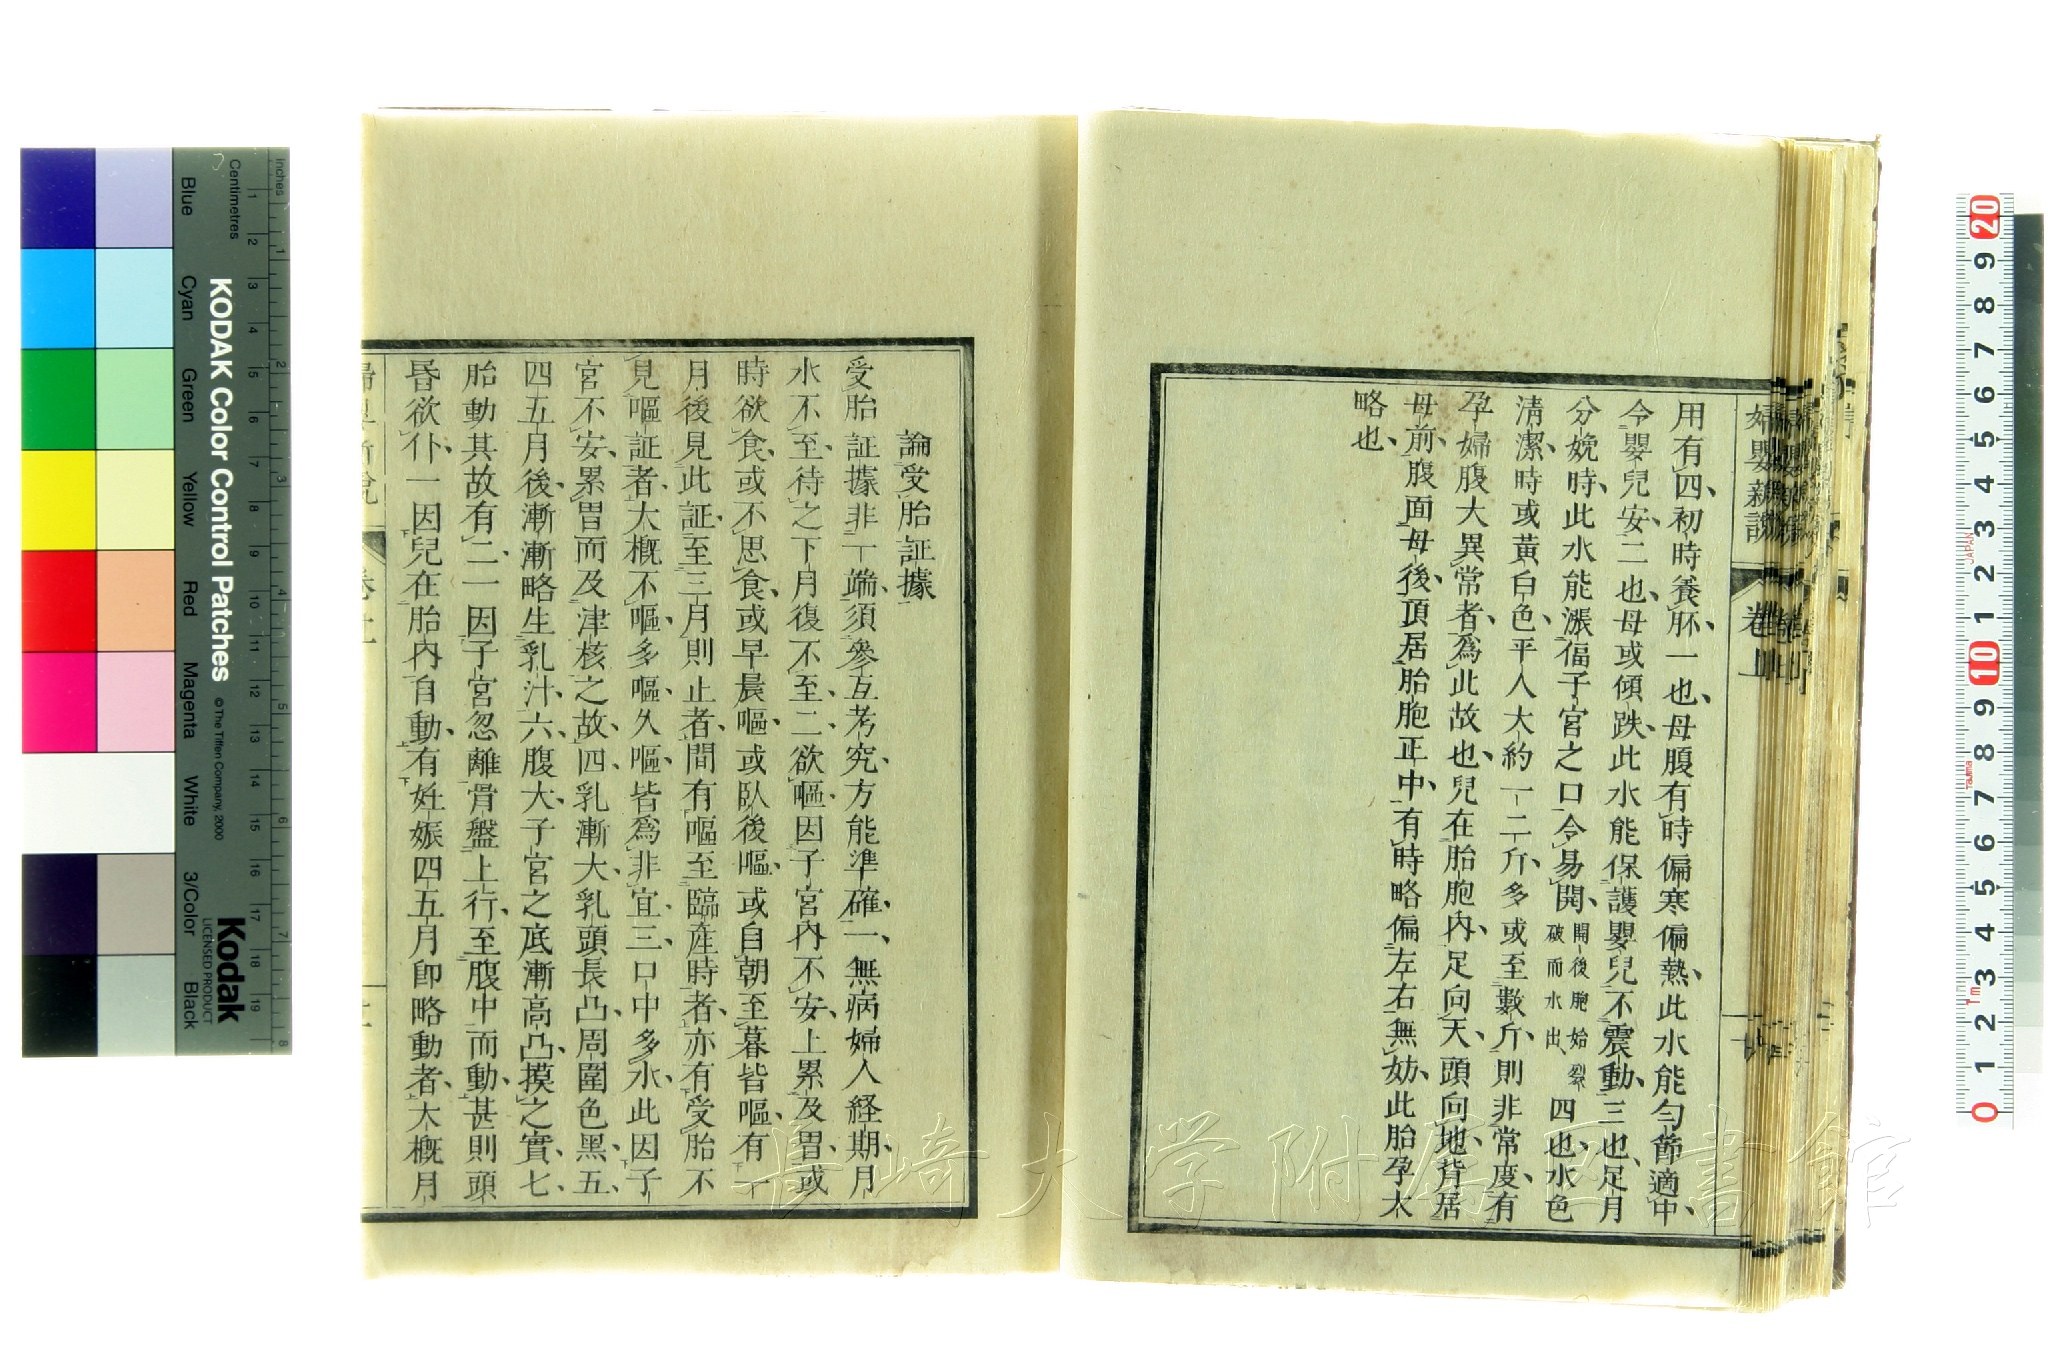 用有四、初時養胚一也、母腹有時偏寒偏熱、此水能勻節適中、
令嬰兒安、二也、母或傾跌、此水能保護嬰兒不震動、三也、足月
分娩時、此水能漲福子宮之口令易開、開後胞始裂、破而水出、四也、水色
清潔、時或黃白色、平人大約一二斤、多或至數斤、則非常度、有
孕婦腹大異常者、爲此故也、兒在胎胞內、足向天、頭向地、背居
母前腹、面母後、頂居胎胞正中、有時略偏左右無妨、此胎孕大
略也、
婦嬰新說
卷上
論受胎証據
受胎証據非一端、須參互考究、方能準確、一無病婦人経期、月
水不至、待之下月復不至、二欲嘔、因子宮內不安、上累及胃、或
時欲食、或不思食、或早晨嘔、或臥後嘔、或自朝至暮皆嘔、有一
月後見此証、至三月則止者、間有嘔至臨產時者、亦有受胎不
見嘔証者、大概不嘔多嘔久嘔、皆爲非宜、三口中多水、此因子
宮不安、累胃而及津核之故、四乳漸大、乳頭長凸、周圍色黑、五
四五月後、漸漸略生乳汁、六腹大、子宮之底漸高凸、摸之實、七
胎動其故有二、一因子宮忽離骨盤上行、至腹中而動、甚則頭
昏欲仆、一因兒在胎內自動、有妊娠四五月卽略動者、大概月
婦嬰新說
卷上
長崎大学附属図書館
KODAK Color Control Patches
© The Tiffen Company, 2000
Kodak
LICENSED PRODUCT
Inches
Centimetres
Blue
Cyan
Green
Yellow
Red
Magenta
White
3/Color
Black
1 2 3 4 5 6 7 8 9 10 11 12 13 14 15 16 17 18 19
1 2 3 4 5 6 7 8
20 9 8 7 6 5 4 3 2 1 10 9 8 7 6 5 4 3 2 1 0
JAPAN